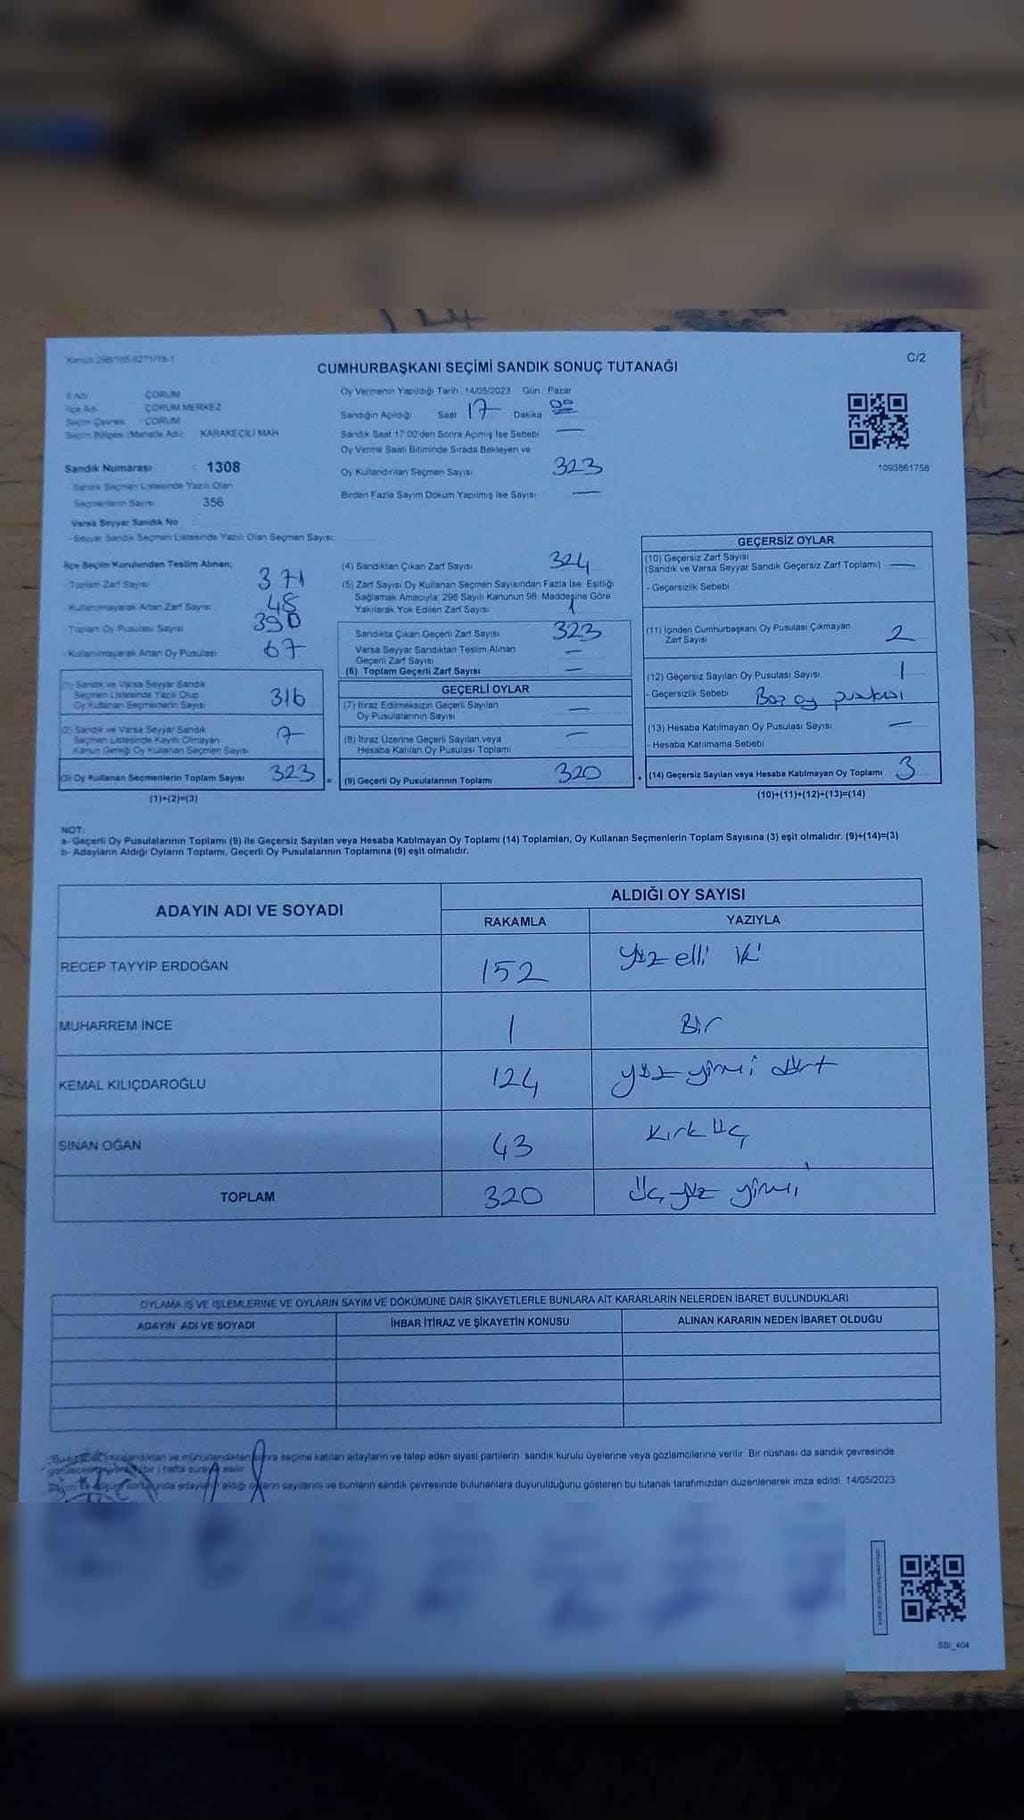 CUMHURBAŞKANI SEÇİMİ SANDIK SONUÇ TUTANAĞI
C/2
İl Adı ÇORUM
İlçe Adı ÇORUM MERKEZ
Seçim Çevresi ÇORUM
Seçim Bölgesi (Mahalle Adı) KARAKEÇİLİ MAH
Sandık Numarası : 1308
Sandık Seçmen Listesinde Yazılı Olan
Seçmenlerin Sayısı 356
Varsa Seyyar Sandık No
- Seyyar Sandık Seçmen Listesinde Yazılı Olan Seçmen Sayısı:
Oy Vermenin Yapıldığı Tarih : 14/05/2023 Gün : Pazar
Sandığın Açıldığı Saat 17 Dakika 00
Sandık Saat 17:00'den Sonra Açılmış İse Sebebi —
Oy Verme Saati Bitiminde Sırada Bekleyen ve
Oy Kullandırılan Seçmen Sayısı 323
Birden Fazla Sayım Döküm Yapılmış İse Sayısı —
1093861758
İlçe Seçim Kurulundan Teslim Alınan;
- Toplam Zarf Sayısı 371
- Kullanılmayarak Artan Zarf Sayısı 48
- Toplam Oy Pusulası Sayısı 390
- Kullanılmayarak Artan Oy Pusulası 67
(1) Sandık ve Varsa Seyyar Sandık
Seçmen Listesinde Yazılı Olup
Oy Kullanan Seçmenlerin Sayısı 316
(2) Sandık ve Varsa Seyyar Sandık
Seçmen Listesinde Kayıtlı Olmayan
Kanun Gereği Oy Kullanan Seçmen Sayısı 7
(3) Oy Kullanan Seçmenlerin Toplam Sayısı 323 =
(1)+(2)=(3)
(4) Sandıktan Çıkan Zarf Sayısı 324
(5) Zarf Sayısı Oy Kullanan Seçmen Sayısından Fazla İse, Eşitliği
Sağlamak Amacıyla, 298 Sayılı Kanunun 98. Maddesine Göre
Yakılarak Yok Edilen Zarf Sayısı 1
Sandıkta Çıkan Geçerli Zarf Sayısı 323
Varsa Seyyar Sandıktan Teslim Alınan
Geçerli Zarf Sayısı —
(6) Toplam Geçerli Zarf Sayısı —
GEÇERLİ OYLAR
(7) İtiraz Edilmeksizin Geçerli Sayılan
Oy Pusulalarının Sayısı —
(8) İtiraz Üzerine Geçerli Sayılan veya
Hesaba Katılan Oy Pusulası Toplamı —
(9) Geçerli Oy Pusulalarının Toplamı 320 +
GEÇERSİZ OYLAR
(10) Geçersiz Zarf Sayısı
(Sandık ve Varsa Seyyar Sandık Geçersiz Zarf Toplamı) —
- Geçersizlik Sebebi
(11) İçinden Cumhurbaşkanı Oy Pusulası Çıkmayan
Zarf Sayısı 2
(12) Geçersiz Sayılan Oy Pusulası Sayısı 1
- Geçersizlik Sebebi Boş oy pusulası
(13) Hesaba Katılmayan Oy Pusulası Sayısı —
- Hesaba Katılmama Sebebi
(14) Geçersiz Sayılan veya Hesaba Katılmayan Oy Toplamı 3
(10)+(11)+(12)+(13)=(14)
NOT:
a- Geçerli Oy Pusulalarının Toplamı (9) ile Geçersiz Sayılan veya Hesaba Katılmayan Oy Toplamı (14) Toplamları, Oy Kullanan Seçmenlerin Toplam Sayısına (3) eşit olmalıdır. (9)+(14)=(3)
b- Adayların Aldığı Oyların Toplamı, Geçerli Oy Pusulalarının Toplamına (9) eşit olmalıdır.
ADAYIN ADI VE SOYADI
ALDIĞI OY SAYISI
RAKAMLA YAZIYLA
RECEP TAYYİP ERDOĞAN 152 Yüz elli iki
MUHARREM İNCE 1 Bir
KEMAL KILIÇDAROĞLU 124 yüz yirmi dört
SİNAN OĞAN 43 Kırk üç
TOPLAM 320 Üç yüz yirmi
OYLAMA İŞ VE İŞLEMLERİNE VE OYLARIN SAYIM VE DÖKÜMÜNE DAİR ŞİKAYETLERLE BUNLARA AİT KARARLARIN NELERDEN İBARET BULUNDUKLARI
ADAYIN ADI VE SOYADI İHBAR İTİRAZ VE ŞİKAYETİN KONUSU ALINAN KARARIN NEDEN İBARET OLDUĞU
sonra seçime katılan adayların ve talep eden siyasi partilerin sandık kurulu üyelerine veya gözlemcilerine verilir. Bir nüshası da sandık çevresinde
adayların aldığı oyların sayılarını ve bunların sandık çevresinde bulunanlara duyurulduğunu gösteren bu tutanak tarafımızdan düzenlenerek imza edildi. 14/05/2023
SSI_404